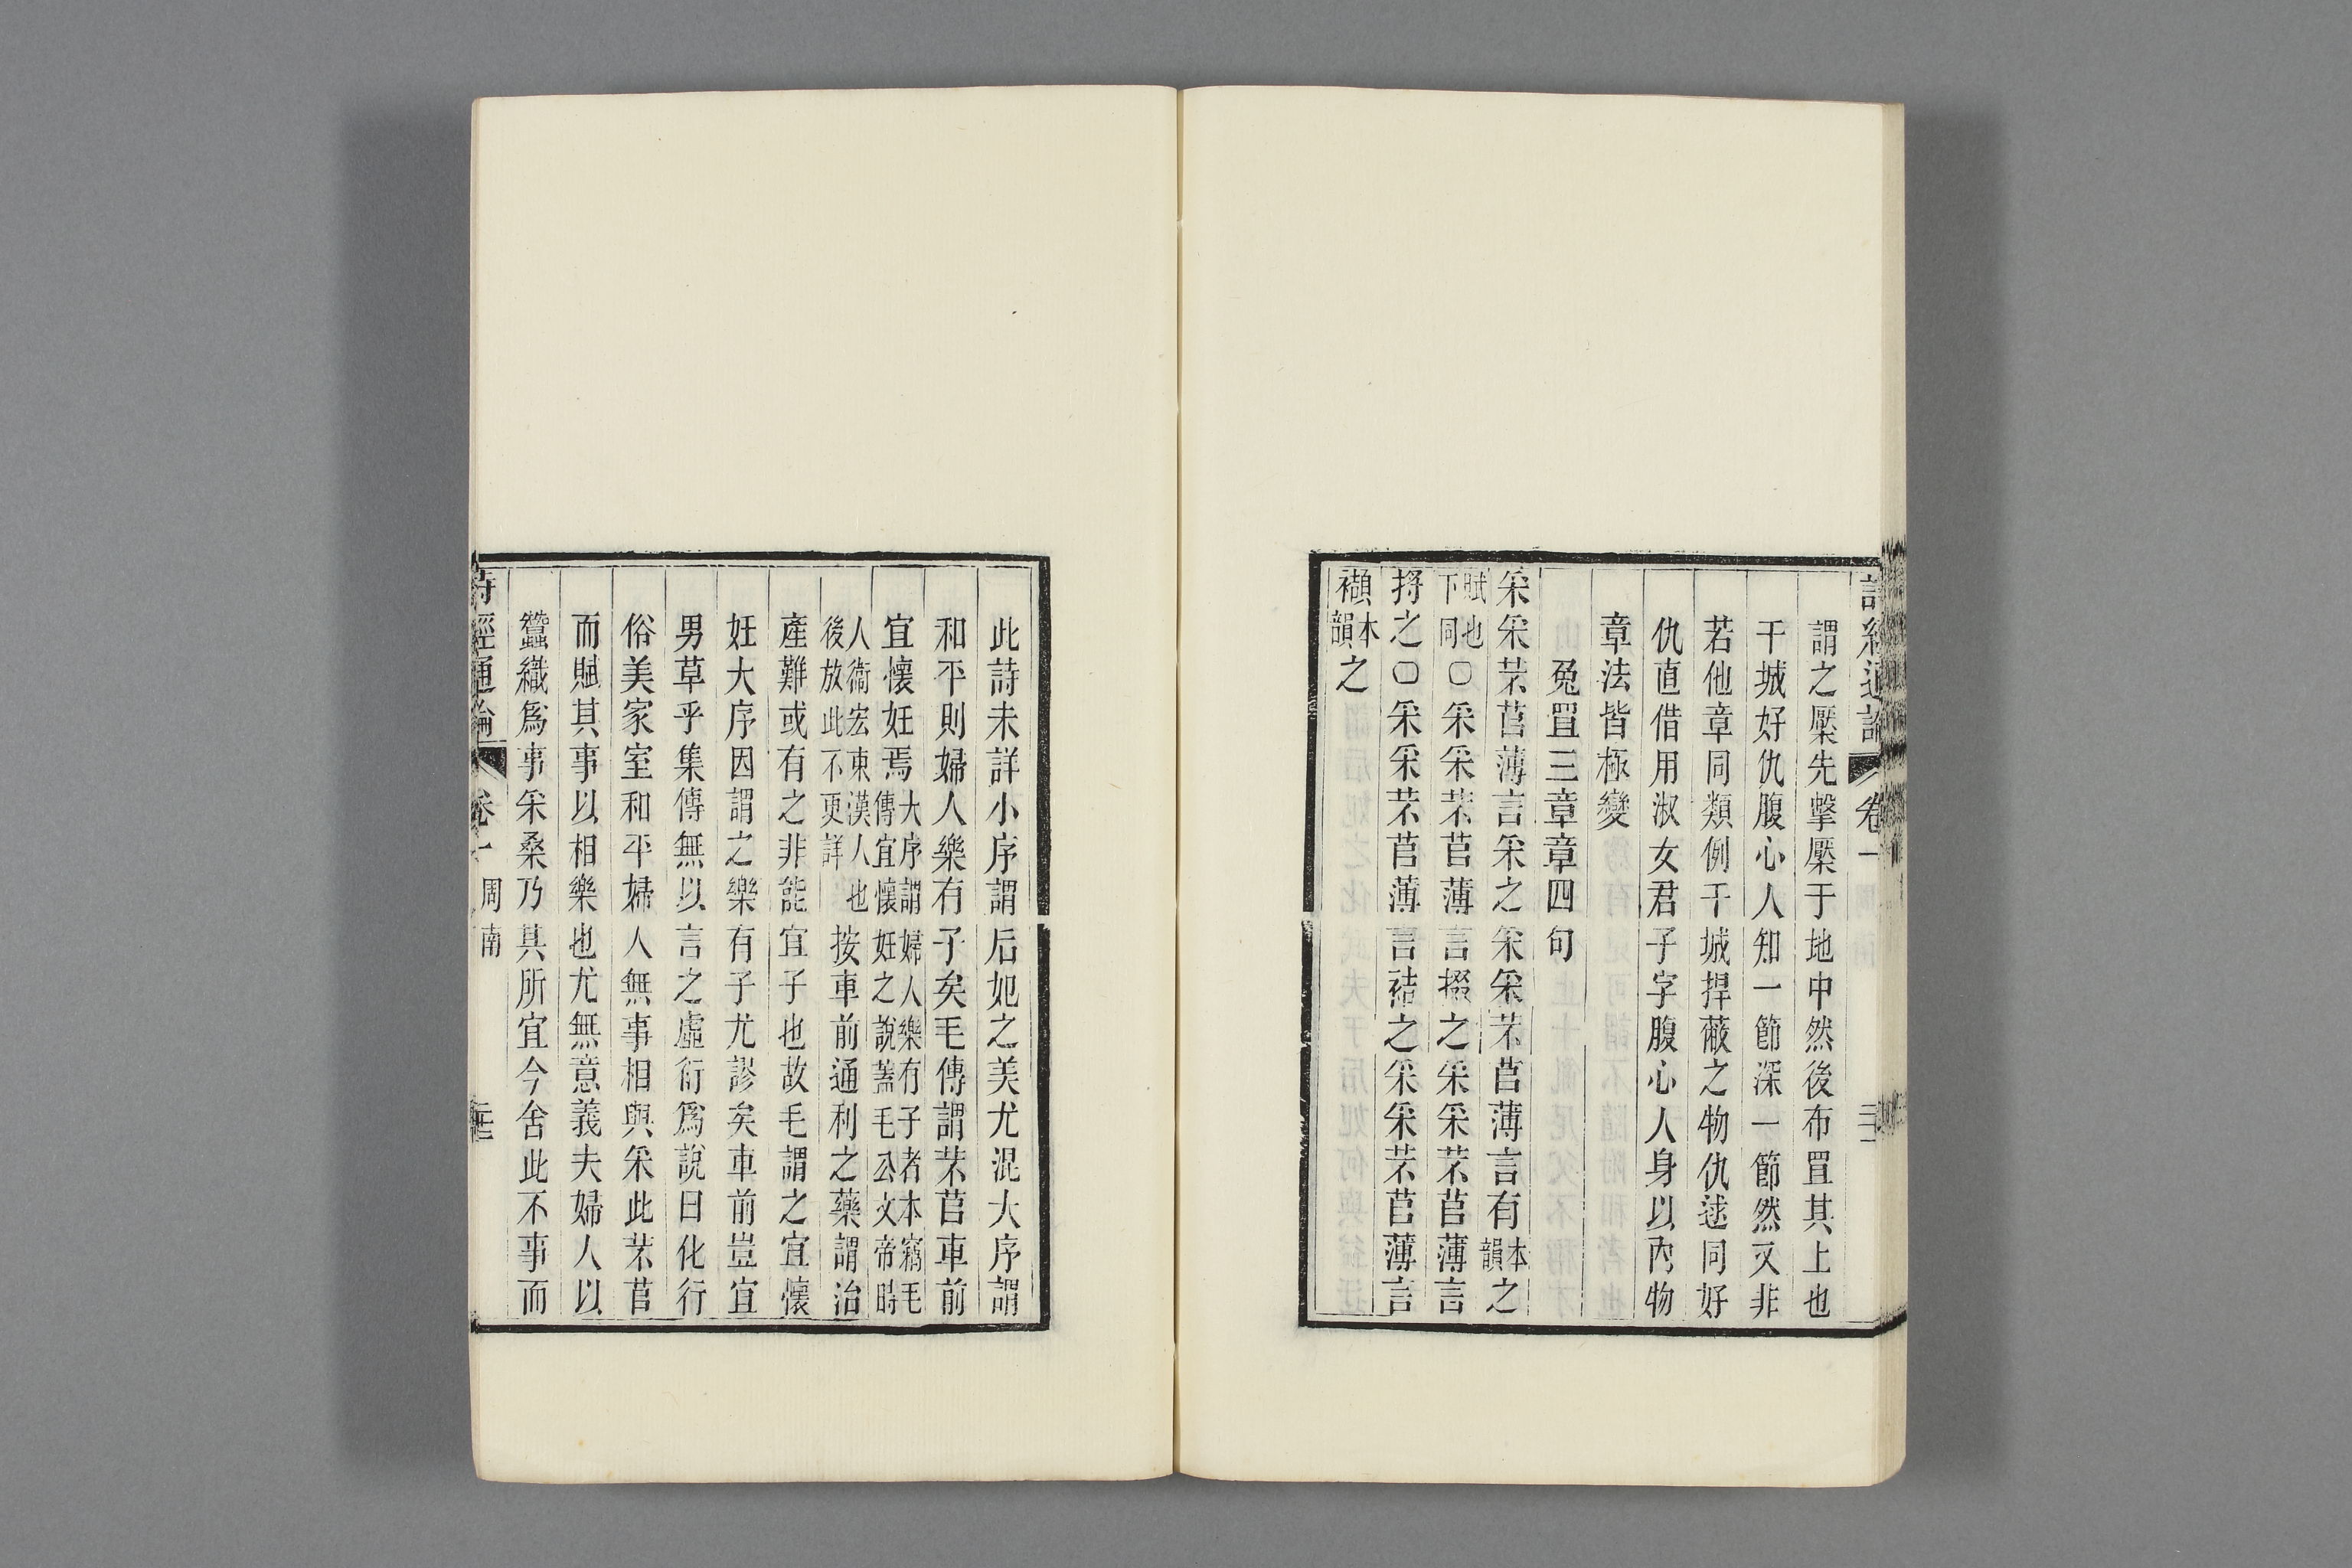 詩經通論 卷一
謂之橜先擊橜于地中然後布罝其上也
干城好仇腹心人知一節深一節然又非
若他章同類例干城捍蔽之物仇逑同好
仇直借用淑女君子字腹心人身以內物
章法皆極變
兔罝三章章四句
采采芣苢薄言采之采采芣苢薄言有本韻之
賦也下同○采采芣苢薄言掇之采采芣苢薄言
捋之○采采芣苢薄言袺之采采芣苢薄言
襭本韻之
此詩未詳小序謂后妃之美尤混大序謂
和平則婦人樂有子矣毛傳謂芣苢車前
宜懷妊焉大序謂婦人樂有子者本竊毛傳宜懷妊之說蓋毛公文帝時
人衞宏東漢人也後放此不更詳按車前通利之藥謂治
產難或有之非能宜子也故毛謂之宜懷
妊大序因謂之樂有子尤謬矣車前豈宜
男草乎集傳無以言之虛衍爲說曰化行
俗美家室和平婦人無事相與采此芣苢
而賦其事以相樂也尤無意義夫婦人以
蠶織爲事采桑乃其所宜今舍此不事而
詩經通論 卷一 周南